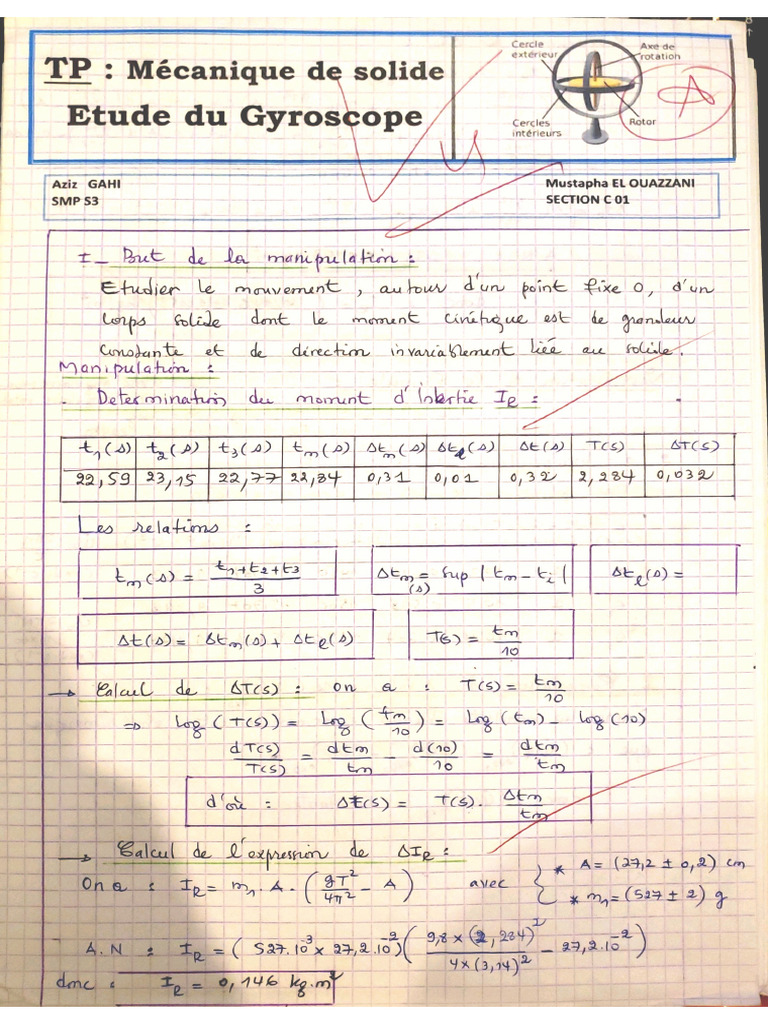 TP : Mécanique de solide
Etude du Gyroscope
Cercle extérieur
Axe de rotation
Cercles intérieurs
Rotor
A
Aziz GAHI
Mustapha EL OUAZZANI
SMP S3
SECTION C 01
I_ But de la manipulation :
Etudier le mouvement, autour d'un point fixe O, d'un
corps solide dont le moment cinétique est de grandeur
constante et de direction invariablement liée au solide.
Manipulation :
. Determination du moment d'inertie I_R :
t₁(s) t₂(s) t₃(s) tm(s) Δtm(s) Δtℓ(s) Δt(s) T(s) ΔT(s)
22,59 23,15 22,77 22,84 0,31 0,01 0,32 2,284 0,032
Les relations :
tm(s) = (t₁+t₂+t₃)/3
Δtm(s) = sup |tm - ti|
Δtℓ(s) =
Δt(s) = Δtm(s) + Δtℓ(s)
T(s) = tm/10
→ Calcul de ΔT(s) : on a : T(s) = tm/10
⇒ Log(T(s)) = Log(tm/10) = Log(tm) - Log(10)
dT(s)/T(s) = dtm/tm - d(10)/10 = dtm/tm
d'où : Δt(s) = T(s). Δtm/tm
→ Calcul de l'expression de ΔI_R :
On a : I_R = m₁. A. (gT²/4π² - A) avec { * A = (27,2 ± 0,2) cm
* m₁ = (527 ± 2) g
A.N : I_R = (527.10⁻³ × 27,2.10⁻²)(9,8 × (2,284)²/4×(3,14)² - 27,2.10⁻²)
donc : I_R = 0,146 kg.m²